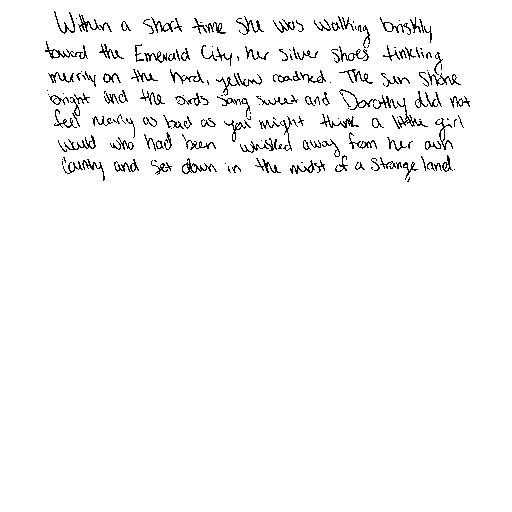 Within a short time she was walking briskly
toward the Emerald City, her Silver Shoes tinkling
merrily on the hard, yellow roadbed. The sun shone
bright and the birds sang sweet and Dorothy did not
feel nearly as bad as you might think a little girl
would who had been whisked away from her own
country and set down in the midst of a strange land.